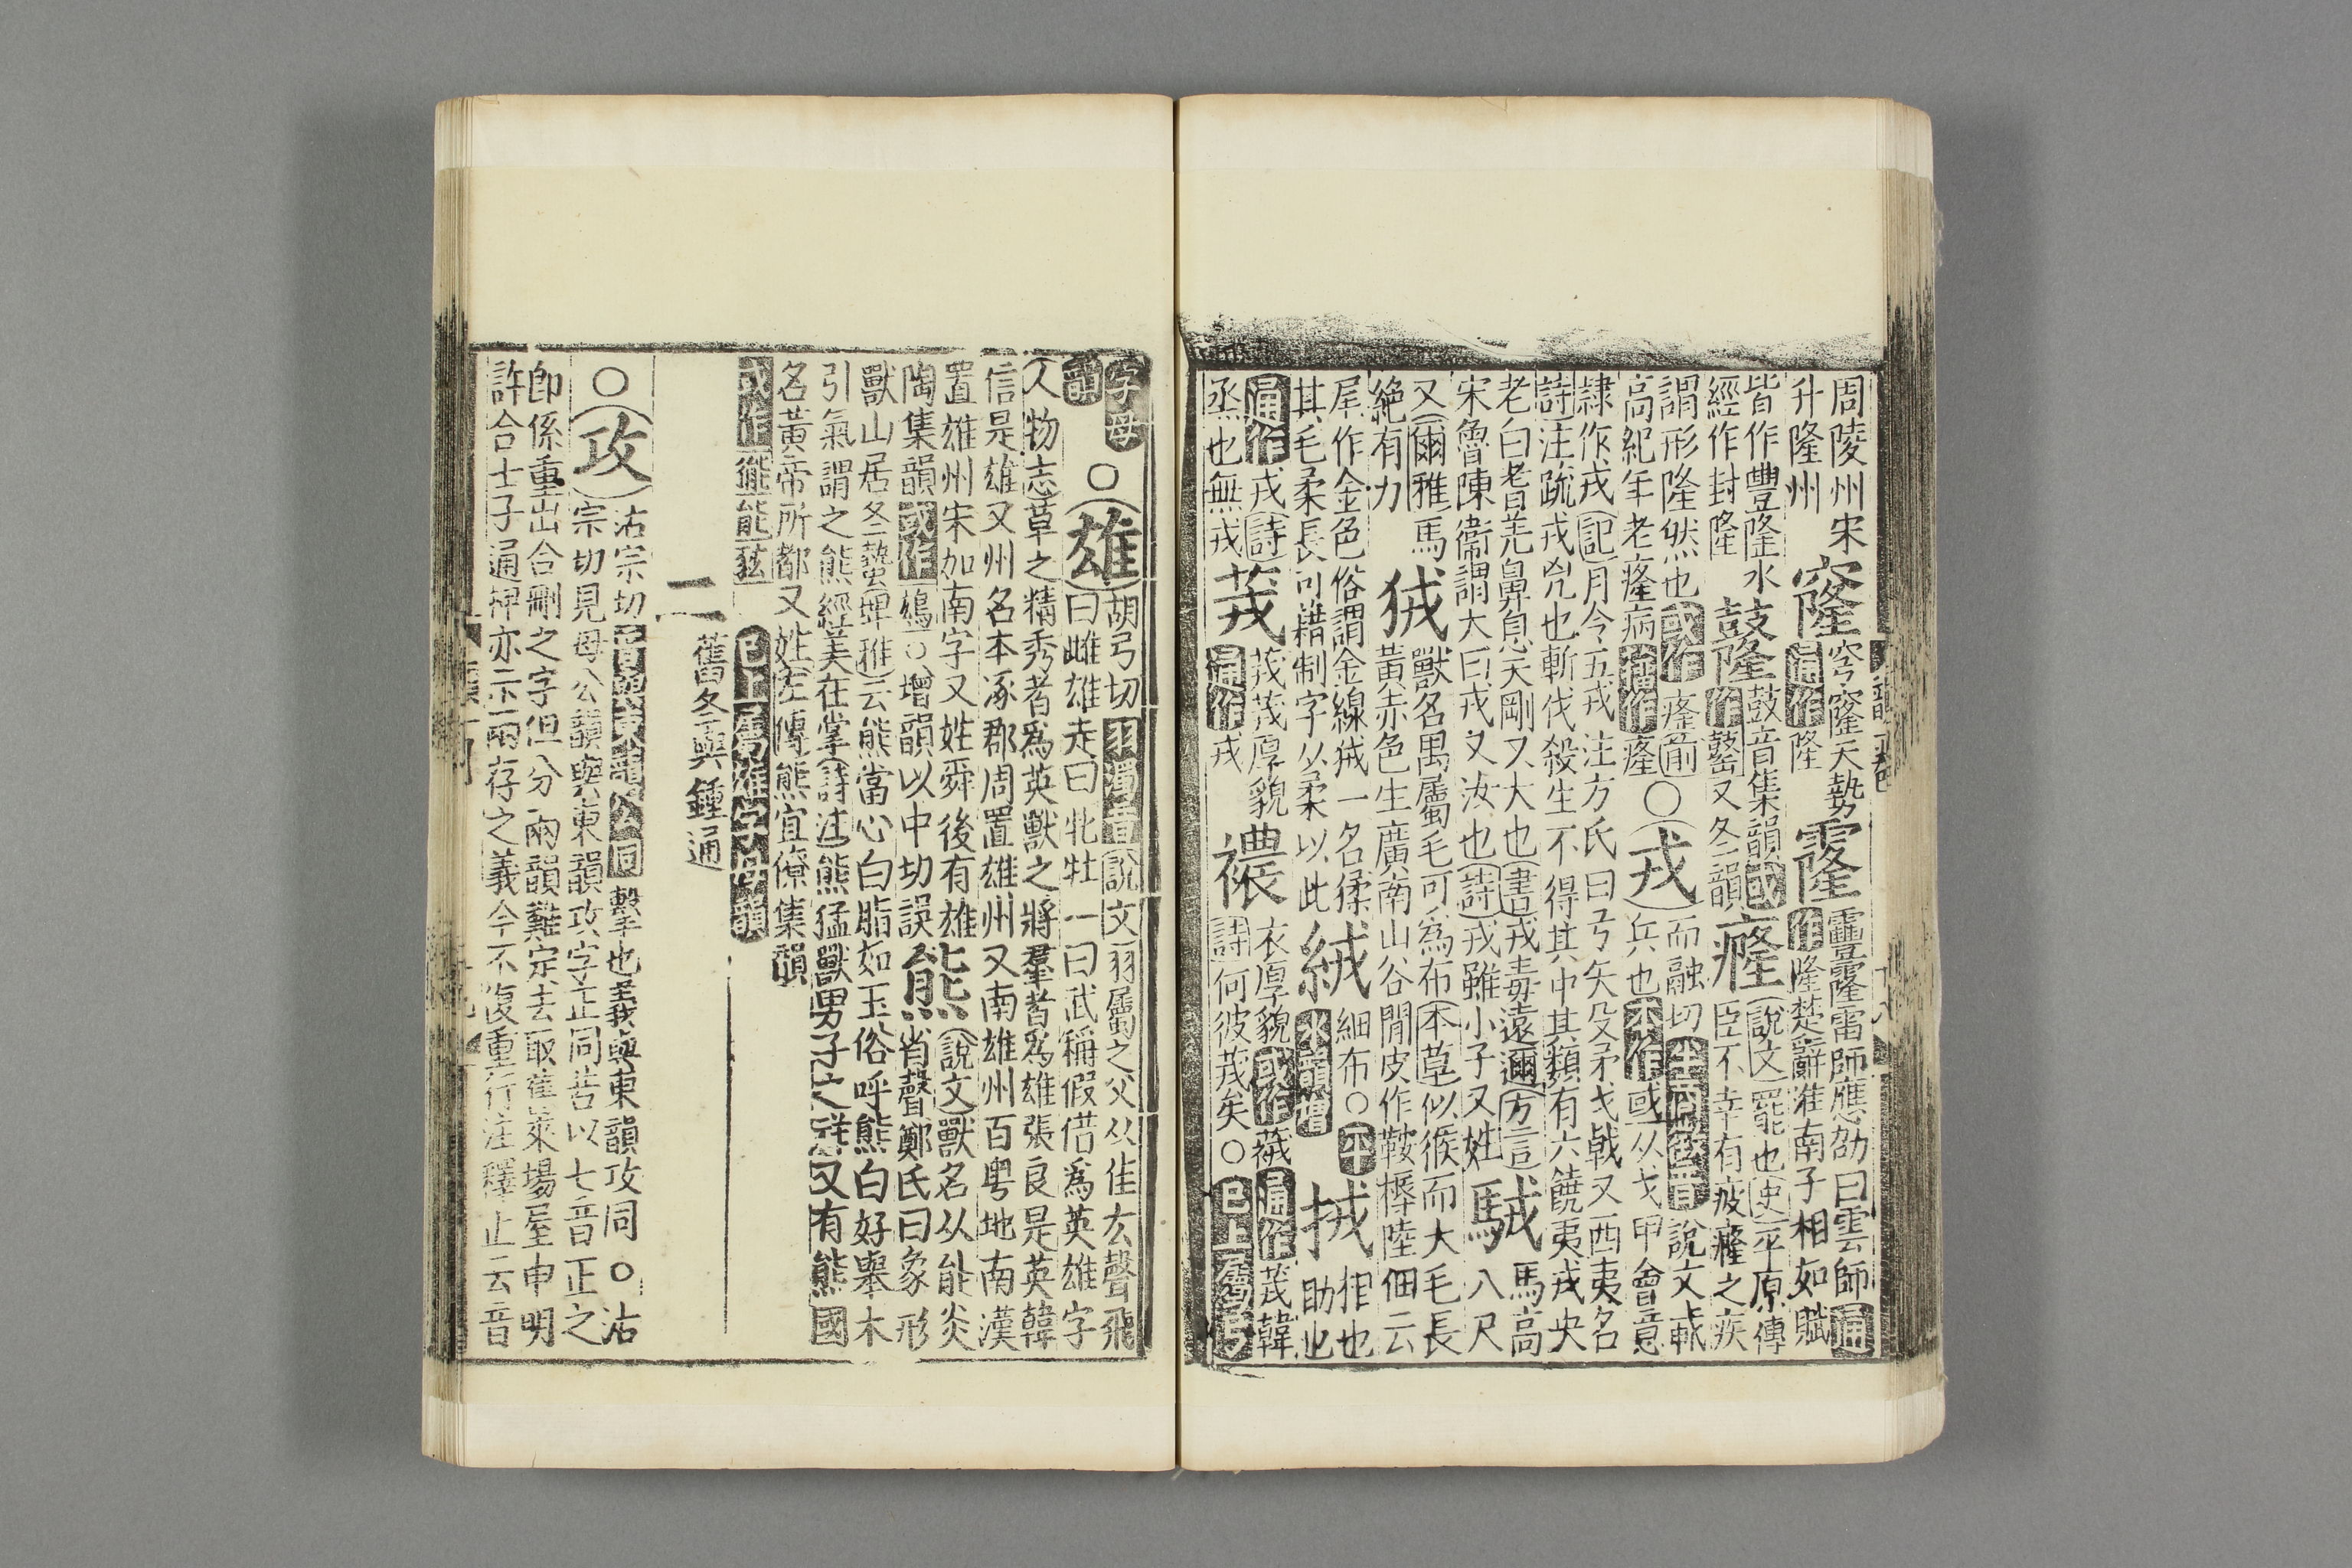 周陵州宋
升隆州
窿
穹窿天勢
通作隆
霳
靊霳雷師應劭曰雲師通
作隆楚辭淮南子相如賦
皆作豐隆水
經作封隆
鼓音集韻或
作又冬韻
癃
說文罷也史平原傳
臣不幸有疲癃之疾
謂形隆然也或作㾖前
高紀年老㾖病籀作㾖
○戎
而融切半商徵音說文
兵也本作从戈甲會意
隸作戎記月令五戎注方氏曰弓矢殳矛戈戟又西夷名
詩注疏戎兇也斬伐殺生不得其中其類有六饒夷戎央
老白耆羌鼻息天剛又大也書戎毒遠邇方言
宋魯陳衛謂大曰戎又汝也詩戎雖小子又姓
駥
馬高
八尺
又爾雅馬
絶有力
狨
獸名禺屬毛可為布本草似猴而大毛長
黃赤色生廣南山谷間皮作鞍褥陸佃云
尾作金色俗謂金線狨一名猱
其毛柔長可藉制字以柔以此
絨
細布○平
水韻增
也
助也
通作戎詩
烝也無戎
茙
茙茙厚貌
通作戎
襛
衣厚貌或作通作茙韓
詩何彼茙矣○已上屬弓
字母
韻
○雄
胡弓切羽濁音說文羽屬之父从隹厷聲飛
曰雌雄走曰牝牡一曰武稱假借爲英雄字
人物志草之精秀者爲英獸之將羣者爲雄張良是英韓
信是雄又州名本涿郡周置雄州又南雄州百粤地南漢
置雄州宋加南字又姓舜後有雄
陶集韻或作鴆○增韻以中切誤
熊
說文獸名从能炎
省聲鄭氏曰象形
獸山居冬蟄埤雅云熊當心白脂如玉俗呼熊白好舉木
引氣謂之熊經美在掌詩注熊猛獸男子之祥又有熊國
名黃帝所都又姓左傳熊宜僚集韻
或作能
已上屬雄字母韻
二
舊冬與鍾通
○攻
沽宗切音與東韻公同擊也義與東韻攻同○沽
宗切見母公韻與東韻攻字正同昔以七音正之
卽係重出合刪之字但分兩韻難定去取舊來場屋申明
許合士子通押亦示兩存之義今不復重行注釋止云音